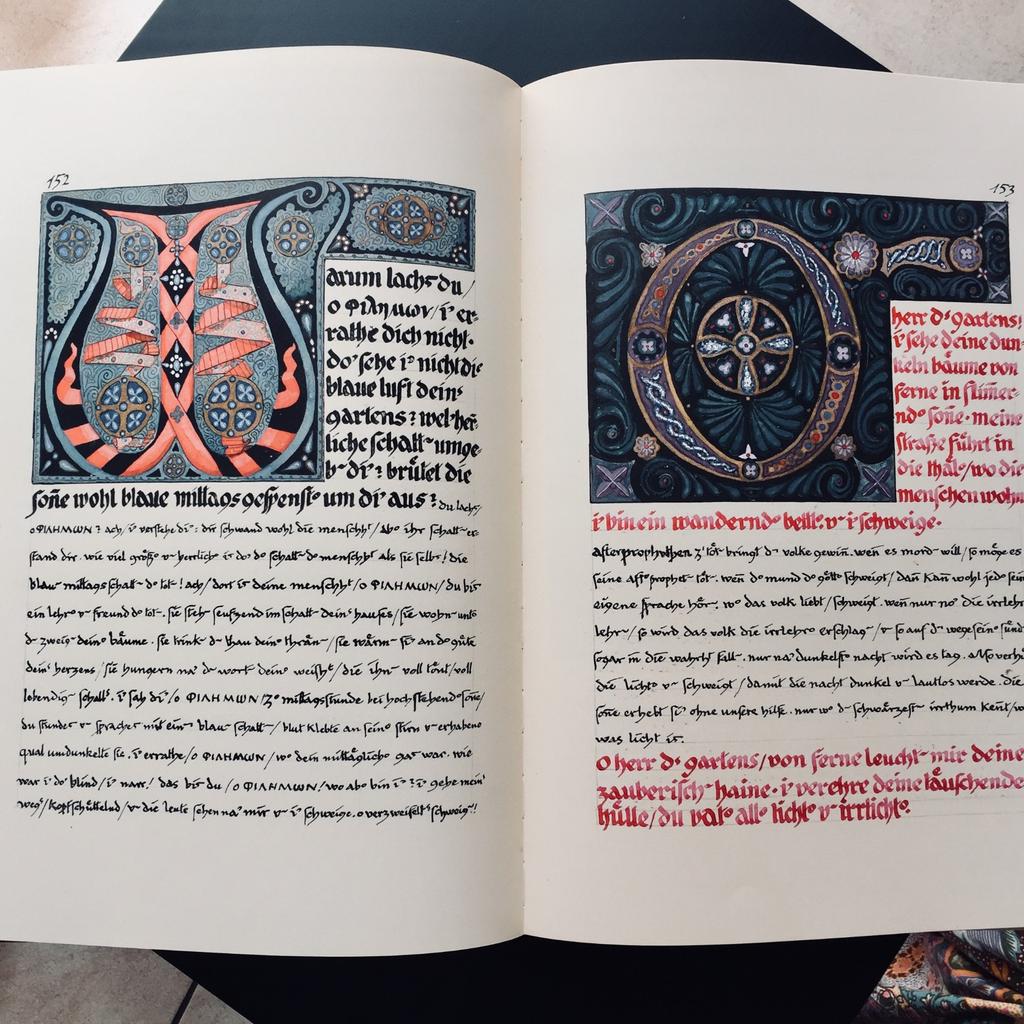 152
Warum lachst du /
o ΦΙΛΗΜΩΝ / i' er-
rathe dich nicht.
do' sehe i' nicht die
blaue luft dein'
gartens? welch' her-
liche schatt' umge-
b' di'? brütet die
soñe wohl blaue mittags gespenst' um di' aus?
du lachs /
o ΦΙΛΗΜΩΝ? ach / i' verstehe di': dir schwand wohl die menschh' / ab' ihr schatt' er-
stand dir. wie viel größ' v' herrlich' is' do' d' schatt' d' menschh' als sie selbs'! die
blau' mittagsschatt' d' tot'! ach / dort is' deine menschh' / o ΦΙΛΗΜΩΝ / du bis'
ein lehr' v' freund d' tot'. sie steh' seufzend im schatt' dein' hauses / sie wohn' unt'
d' zweig' dein' bäume. sie trink' d' thau dein' thrän' / sie wärm' si' an d' güte
dein' herzens / sie hungern na' d' wort' dein' weish' / die ihn' voll tönt / voll
lebendig' schall'. i' sah di' / o ΦΙΛΗΜΩΝ / z' mittagsstunde bei hochstehend' soñe /
du stundest v' sprachst mit ein' blau' schatt' / blut klebte an sein' stirn v' erhabene
qual umdunkelte sie. i' errathe / o ΦΙΛΗΜΩΝ / w' dein mittäglich' gas' war. wie
war i' do' blind / i' narr! das bis' du / o ΦΙΛΗΜΩΝ! wo ab' bin i'? i' gehe mein'
weg' / kopfschüttelnd / v' die leute sehen na' mir v' i' schweige. o verzweifelt' schweig'!
153
O herr d' gartens!
i' sehe deine dun-
keln bäume von
ferne in flimer-
nd' soñe. meine
straße führt in
die thäl' / wo die
menschen wohn'
i' bin ein wandernd' bettl' v' i' schweige.
afterprophethen z' töt' bringt d' volke gewiñ. wen es mord will / so möge es
seine aft'prophet' töt'. weñ d' mund d' gött' schweigt / dañ kañ wohl jed' sein
eigene sprache hör'. w' das volk liebt / schweigt. weñ nur no' die irrlehr
lehr' / so wird das volk die irrlehr' erschlag' / v' so auf d' wege sein' sünd
sogar in die wahrh' fall'. nur na' dunkelst' nacht wird es tag. also verh
die licht' v' schweigt / damit die nacht dunkel v' lautlos werde. die
soñe erhebt si' ohne unsere hilfe. nur w' d' schwärzest' irrthum keñt / w
was licht is'.
O herr d' gartens / von ferne leucht' mir deine
zauberisch' haine. i' verehre deine täuschende
hülle / du vat' all' licht' v' irrlicht'.